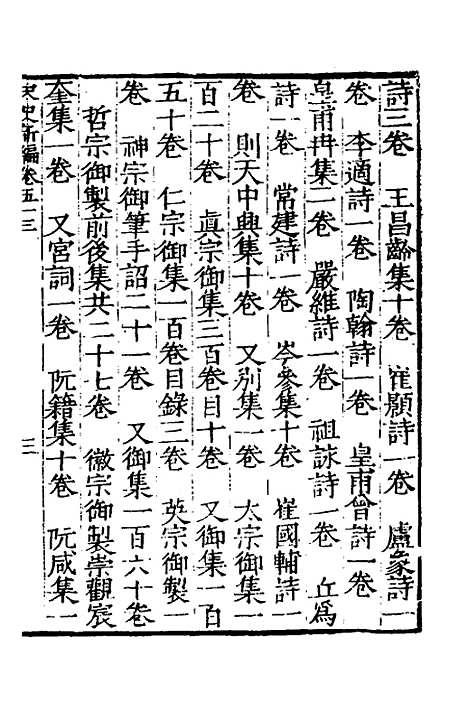 詩三卷　王昌齡集十卷　崔顥詩一卷　盧象詩一
卷　李適詩一卷　陶翰詩一卷　皇甫曾詩一卷
皇甫冉集一卷　嚴維詩一卷　祖詠詩一卷　丘爲
詩一卷　常建詩一卷　岑參集十卷　崔國輔詩一
卷　則天中興集十卷　又别集一卷　太宗御集一
百二十卷　眞宗御集三百卷目十卷　又御集一百
五十卷　仁宗御集一百卷目錄三卷　英宗御製一
卷　神宗御筆手詔二十一卷　又御集一百六十卷
哲宗御製前後集共二十七卷　徽宗御製崇觀宸
奎集一卷　又宮詞一卷　阮籍集十卷　阮咸集一
宋史新編卷五十三　三